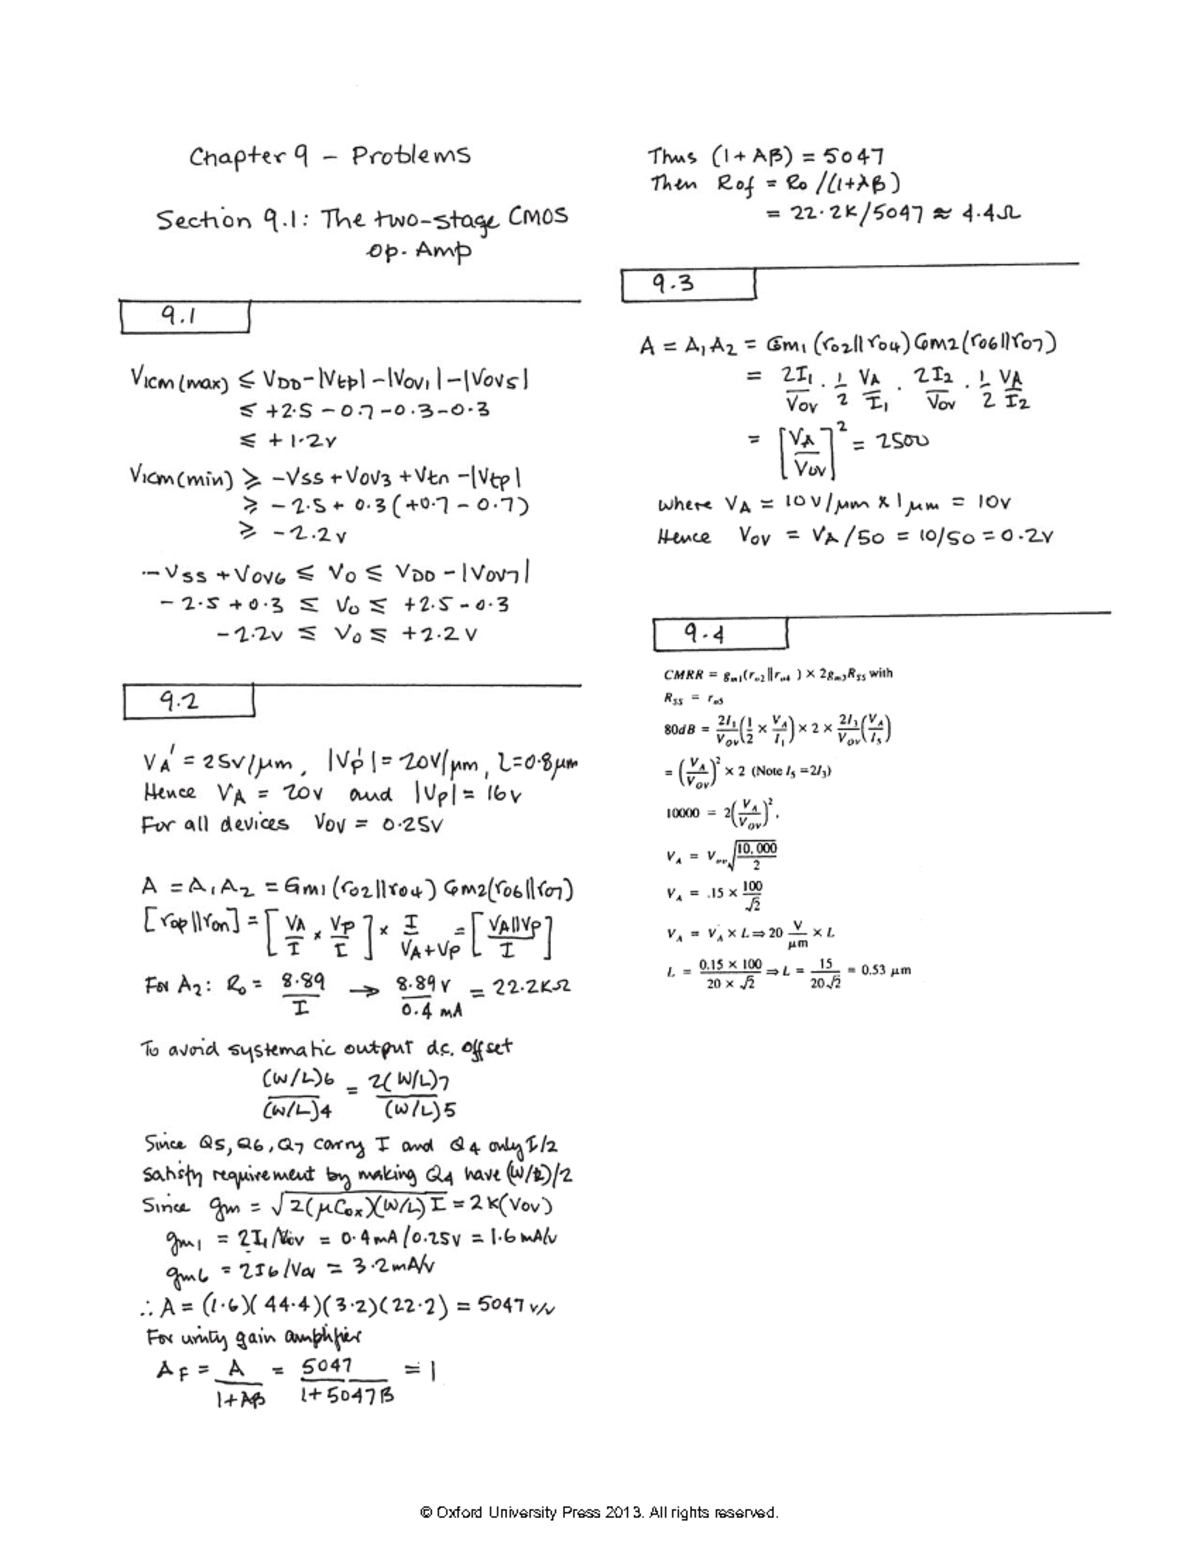 Chapter 9 – Problems
Section 9.1: The two-stage CMOS
Op. Amp
9.1
VICM(max) ≤ VDD-|Vtp|-|VOV1|-|VOV5|
≤ +2.5 - 0.7 - 0.3 - 0.3
≤ +1.2V
VICM(min) ≥ -VSS + VOV3 + Vtn - |Vtp|
≥ -2.5 + 0.3 (+0.7 - 0.7)
≥ -2.2V
-VSS + VOV6 ≤ VO ≤ VDD - |VOV7|
-2.5 + 0.3 ≤ VO ≤ +2.5 - 0.3
-2.2V ≤ VO ≤ +2.2V
9.2
VA' = 25V/μm, |Vp'| = 20V/μm, L=0.8μm
Hence VA = 20V and |Vp| = 16V
For all devices VOV = 0.25V
A = A1A2 = Gm1(ro2||ro4) Gm2(ro6||ro7)
[rop||ron] = [VA/I × Vp/I] × I/(VA+Vp) = [VA||Vp/I]
For A2: Ro = 8.89/I → 8.89V/0.4mA = 22.2KΩ
To avoid systematic output d.c. offset
(W/L)6/(W/L)4 = 2(W/L)7/(W/L)5
Since Q5, Q6, Q7 carry I and Q4 only I/2
satisfy requirement by making Q4 have (W/L)/2
Since gm = √2(μCox)(W/L)I = 2K(VOV)
gm1 = 2I1/VOV = 0.4mA/0.25V = 1.6mA/V
gm6 = 2I6/VOV = 3.2mA/V
∴ A = (1.6)(44.4)(3.2)(22.2) = 5047 V/V
For unity gain amplifier
AF = A/(1+AB) = 5047/(1+5047B) = 1
Thus (1+AB) = 5047
Then Rof = Ro/(1+AB)
= 22.2K/5047 ≈ 4.4Ω
9.3
A = A1A2 = Gm1(ro2||ro4) Gm2(ro6||ro7)
= 2I1/VOV · 1/2 VA/I1 · 2I2/VOV · 1/2 VA/I2
= [VA/VOV]² = 2500
where VA = 10V/μm × 1μm = 10V
Hence VOV = VA/50 = 10/50 = 0.2V
9.4
CMRR = gm1(ro2||ro4) × 2gm3RSS with
RSS = ro5
80dB = 2I1/VOV(1/2 × VA/I1) × 2 × 2I3/VOV(VA/I5)
= (VA/VOV)² × 2 (Note I5 =2I3)
10000 = 2(VA/VOV)².
VA = Vov√(10,000/2)
VA = .15 × 100/√2
VA = VA × L ⇒ 20 V/μm × L
L = 0.15 × 100/20 × √2 ⇒ L = 15/20√2 = 0.53 μm
© Oxford University Press 2013. All rights reserved.